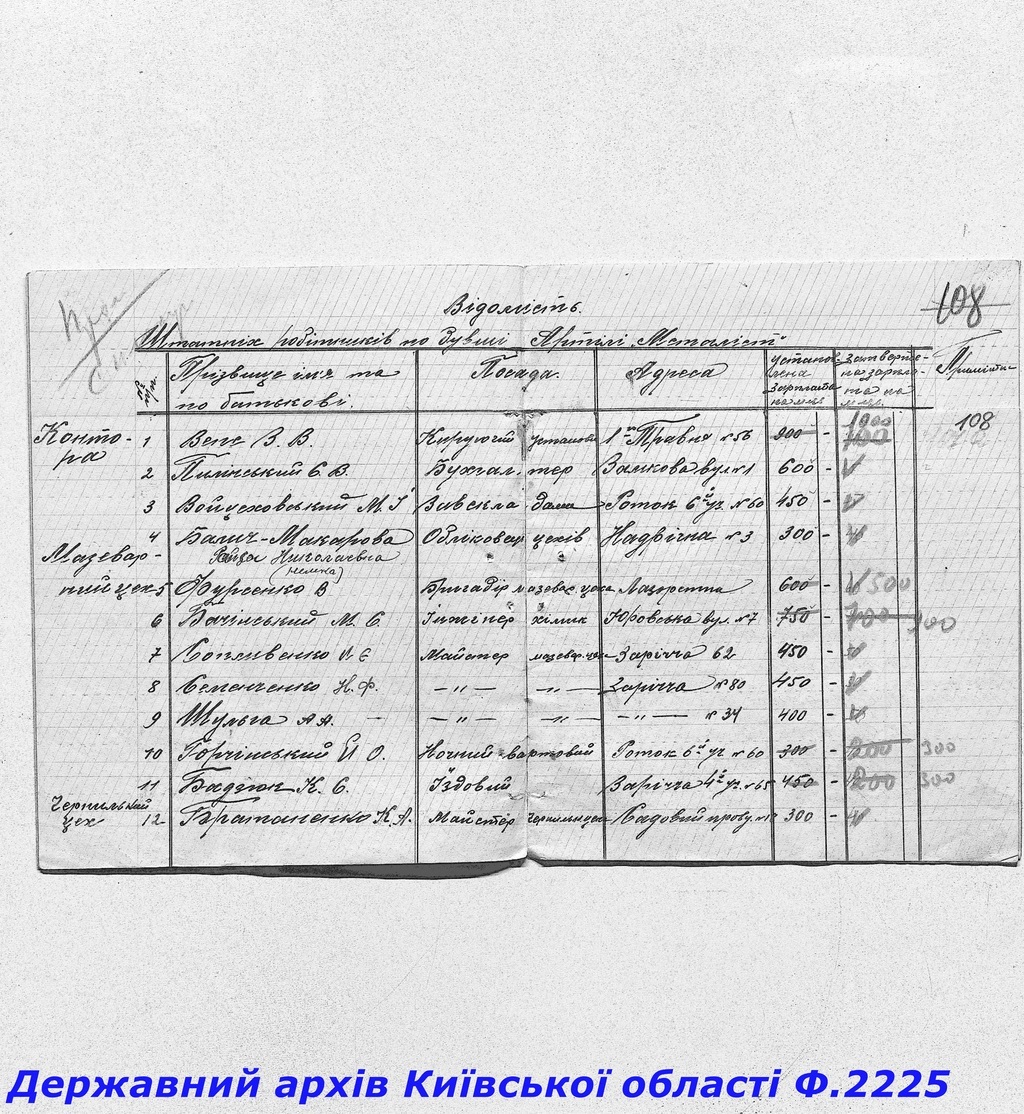 108
Відомість.
Штатніх робітників по бувші Артілі "Металіст"
№ п/п. Прізвище ім'я та по батькові. Посада. Адреса Установлена зарплата на м-ць Затвержена зарплата на м-ць. Примітка
108
Контора
1 Венс З. В. Керуючий установи 1го Травня №56 900 - 700 1000
2 Є. В. Бухгалтер Замкова вул №1 600 -
3 Войцеховський М. І Завскладами Роток 6й уз. №60 450 -
4 Балич-Макарова Обліковець цехів Надрічна №3 300 -
Раїса Николаевна
(немка)
Мазеварний цех
5 Фурсенко В Бригадір мазевар. цеха Лазаретна 600 - 500
6 Бачінський М. Є Інжінер хімик Юровська вул. №7 750 - 700 900
7 Сопливенко И Є Майстер мазевар. цеха Зарічча 62 450 -
8 Семенченко Н. Ф. — " — — " — Зарічча №80 450 -
9 Шульга А А. — — " — — " — — " — №34 400 -
10 Горчінський И О. Ночний вартовий Роток 6й уз №60 300 - 200 300
11 Бадзюк К. Є. Їздовий Зарічча 4й уз. №65 450 - 200 300
Чернильний цех
12 Братаненко К. А. Майстер чернильн цеха Садовий прову. №12 300 -
Державний архів Київської області Ф.2225